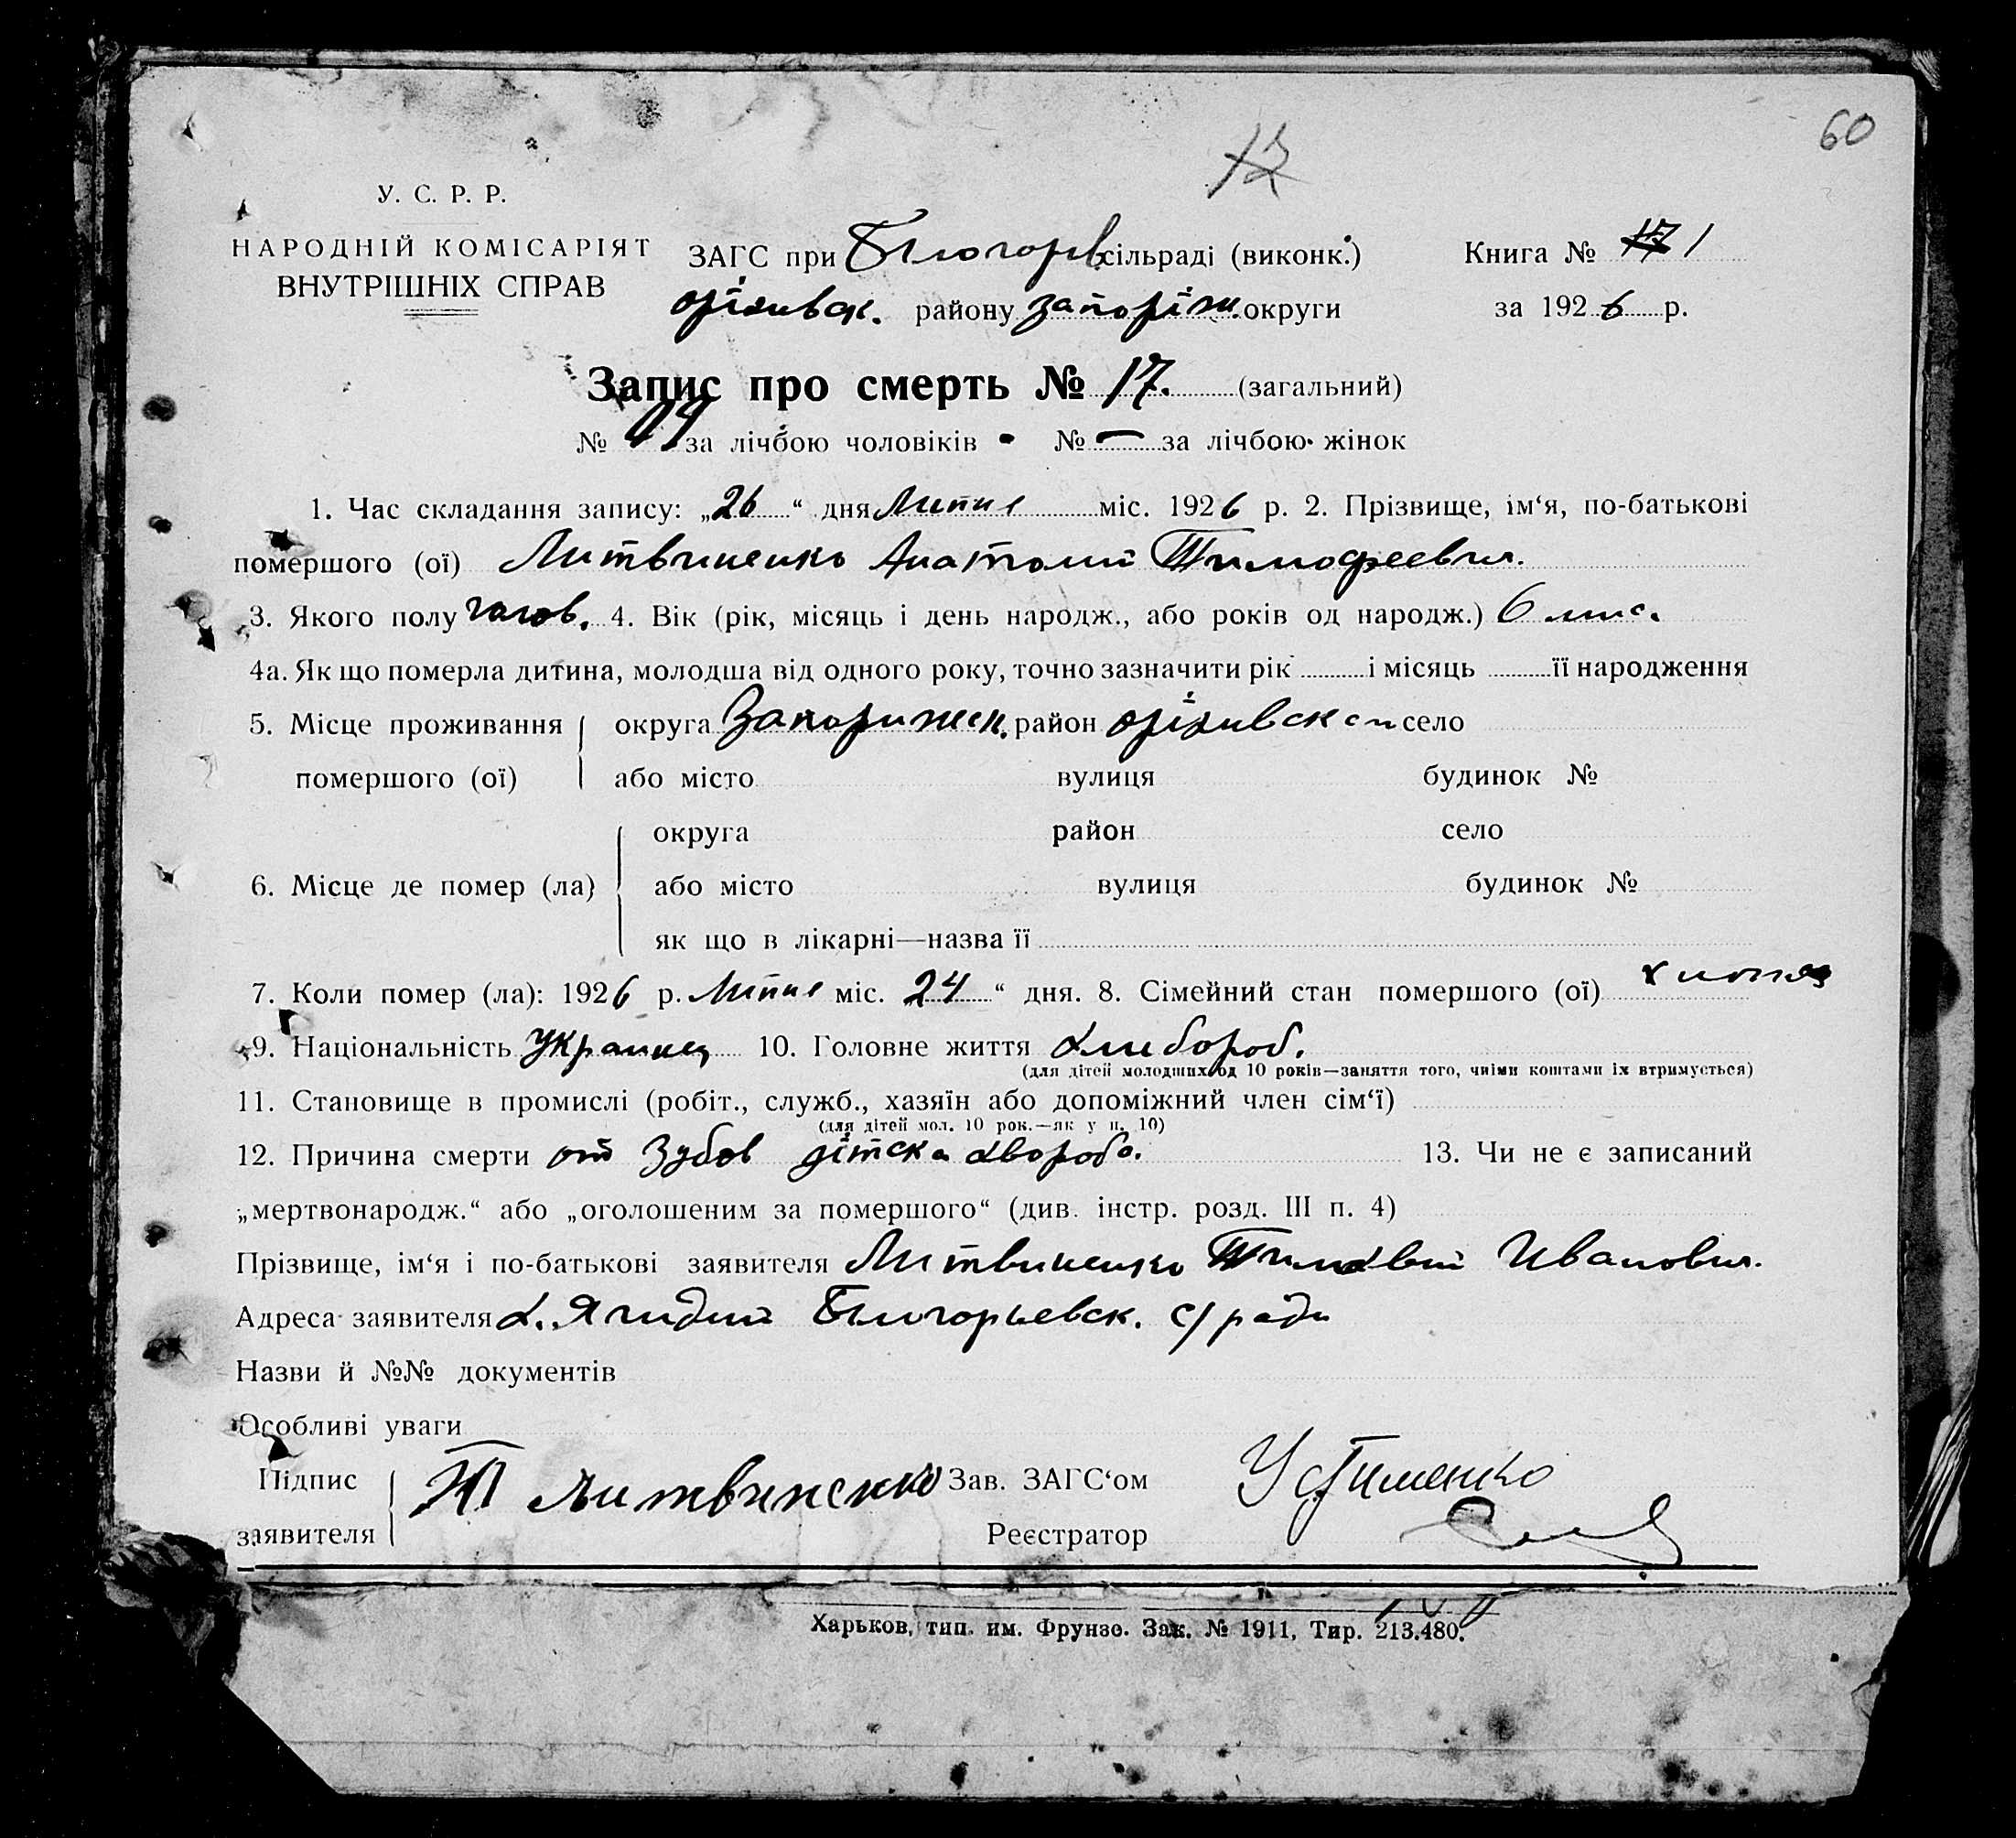 60
У. С. Р. Р.
НАРОДНІЙ КОМІСАРІЯТ
ВНУТРІШНІХ СПРАВ
ЗАГС при Білогорів сільраді (виконк.)
Книга № 17 1
оріхивск. району запоріж. округи
за 1926 р.
Запис про смерть № 17. (загальний)
№ за лічбою чоловіків № — за лічбою жінок
1. Час складання запису: „26“ дня Липня міс. 1926 р. 2. Прізвище, ім‘я, по-батькові
помершого (ої) Литвиненко Анатолий Тимофеевич.
3. Якого полу чолов. 4. Вік (рік, місяць і день народж., або років од народж.) 6 мис.
4а. Як що померла дитина, молодша від одного року, точно зазначити рік і місяць її народження
5. Місце проживання округа Запорижск. район оріхивский село
помершого (ої) або місто вулиця будинок №
округа район село
6. Місце де помер (ла) або місто вулиця будинок №
як що в лікарні—назва її
7. Коли помер (ла): 1926 р. Липня міс. 24“ дня. 8. Сімейний стан помершого (ої)
9. Національність Украинец 10. Головне життя хлибороб.
(для дітей молодших од 10 років—заняття того, чиїми коштами їх втримується)
11. Становище в промислі (робіт., служб., хазяїн або допоміжний член сім‘ї)
(для дітей мол. 10 рок.—як у п. 10)
12. Причина смерти от Зубов дітска хвороба. 13. Чи не є записаний
„мертвонародж.“ або „оголошеним за помершого“ (див. інстр. розд. III п. 4)
Прізвище, ім‘я і по-батькові заявителя Литвиненко Тимохвий Иванович.
Адреса заявителя х. Ягидний Билогорьевск. с/ради
Назви й №№ документів
Особливі уваги
Підпис Т Литвиненко Зав. ЗАГС‘ом Устименко
заявителя Реєстратор
Харьков, тип. им. Фрунзе. Зак. № 1911, Тир. 213.480.